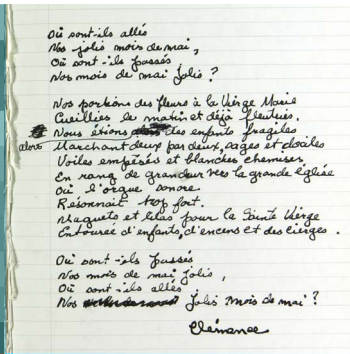 Où sont-ils allés
Nos jolis mois de mai,
Où sont-ils passés,
Nos mois de mai jolis ?
Nos portions des fleurs à la Vierge Marie
Cueillies le matin et déjà fleuries.
Nous étions des enfants fragiles
alors Marchant deux par deux, sages et dociles
Voiles empesés et blanches chemises
En rang de grandeur vers la grande église
Où l'orgue sonore
Résonnait trop fort.
Muguets et lilas pour la Sainte Vierge
Entourée d'enfants, d'encens et des cierges.
Où sont-ils passés
Nos mois de mai jolis,
Où sont-ils allés
Nos jolis mois de mai ?